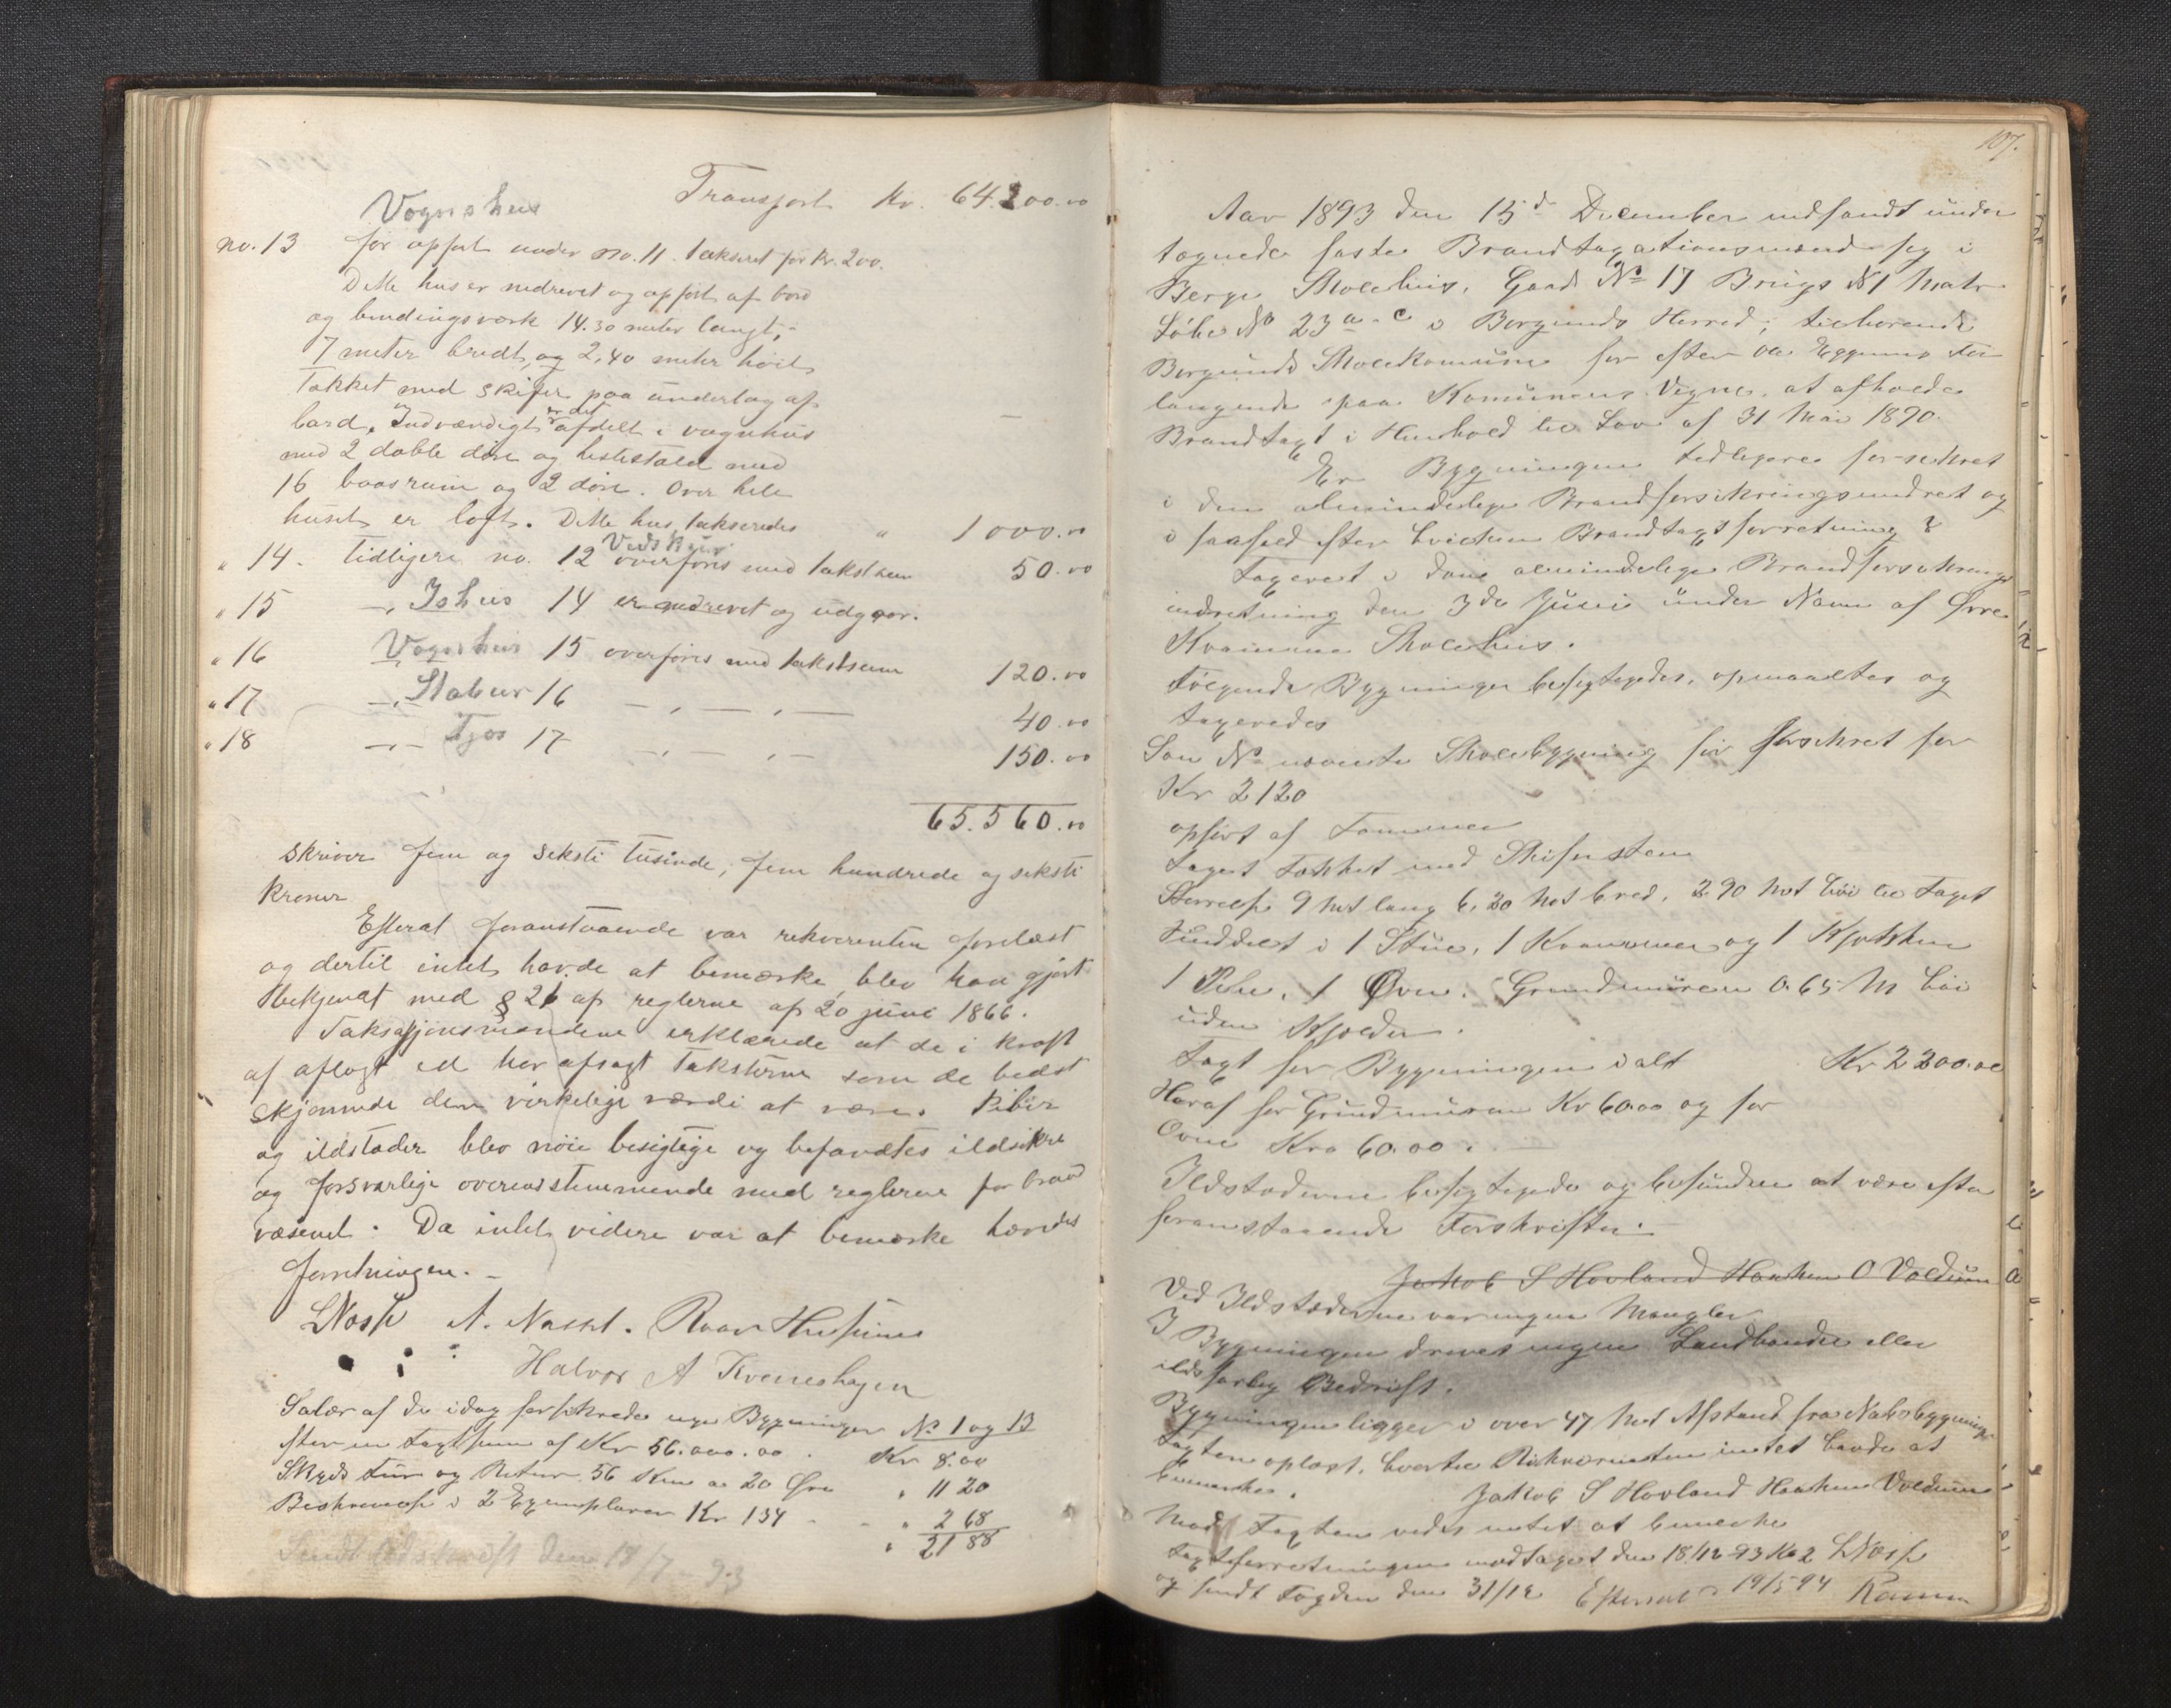 Transport Kr. 64.200.00
Vognshus
no. 13 før opført under no. 11. takseret for kr. 200.
Dette hus er nedrevet og opført af bord
og bindingsværk 14.30 meter langt,
7 meter bredt, og 2,40 meter høit,
Takket med skifer paa underlag af
bord. Indvændigt er det afdelt i vognhus
med 2 doble døre og hestestald med
16 baasrum og 2 døre. Over hele
huset er loft. Dette hus takseredes " 1000.00
" 14. Tidligere no. 12 Vedskjur overføres med takstsum 50.00
" 15 -"- Ishus 14 er nedrevet og udgaar.
" 16 Vognshus 15 overføres med takstsum 120.00
" 17 -"- Stabur 16 - " - " - 40.00
" 18 -"- Fjøs 17 - " - " - 150.00
65.560.00
skriver fem og seksti tusinde, fem hundrede og seksti
kroner
Efterat foranstaaende var rekvirenten forelæst
og dertil intet havde at bemærke, blev han gjort
bekjendt med § 26 af reglerne af 20 juni 1866.
Taksasjonsmændene erklærede at de i kraft
af aflagt ed har afsagt Taksterne som de bedst
skjønnede den virkelige værdi at være. Piber
og ildstæder blev nøie besigtige og befandtes ildsikre
og forsvarlige overensstemmende med reglerne for brand
væsenet. Da intet videre var at bemærke hævedes
forretningen.
LNæsse A. Næsset. Roar Husum
Halvor A Kveneshagen
Salær af de idag forsikrede nye Bygninger No 1 og 13
efter en Taxtsum af Kr 56.000.00 . Kr 8.00
Skyds Tur og Retur 56 Km a 20 Øre " 11 20
Beskrivelse i 2 Exemplarer Kr 134 - - " 2 68
" 21 88
Sendt Udskrift den 18/7 - 93
107.
Aar 1893 den 15d December indfandt under
tegnede faste Brandtaxationsmænd sig i
Berge Skolehus, Gaards No 17 Brugs No 1 Matr
Løbe No 23 a - c i Borgunds Herred; tilhørende
Borgunds Skolekomune for efter Ole Eggums For
langende paa Komunens Vegne, at afholde
Brandtaxt i Henhold til Lov af 31 Mai 1890.
Er Bygningen tidligere forsikret
i den almindelige Brandforsikringsindret og
i saafald efter hvilken Brandtaxtforretning?
Taxeret i den almindelige Brandforsikrings
indretning den 3de Juni under Navn af Øvre
Kvamme Skolehus.
Følgende Bygninger besigtigedes, opmaaltes og
taxeredes
Som No nævnte Skolebygning før forsikret for
Kr 2120
opført af Tømmer
Taget Tækket med Skifersten
Størrelse 9 Met lang 6,30 Met bred, 2 90 Met høi til Taget
Inddelt i 1 Stue, 1 Kammer og 1 Kjøkken
1 Pibe, 1 Øvn. Grundmuren 0.65 M høi
uden Kjelder.
Taxt for Bygningen ialt Kr 2200.00
Heraf for Grundmuren Kr 60.00 og for
Ovne Kro 60.00.
Ildstederne besigtigede og befunden at være efter
foranstaaende Forskrifter.
Jakob S Hovland Haakon O Voldum
Ved Ildstæderne var ingen Mangler
I Bygningen drives ingen Landhandel eller
ildsfarlig Bedrift.
Bygningen ligger i over 47 Met Afstand fra Nabobygninger
Taxten oplæst, hvortil Rekvirenten intet havde at
bemærke.
Jakob S Hovland Haakon Voldum
Mod Taxten vides intet at bemerke
Taxtforretningen modtaget den 18/12 93 Kl 2 LNæsse
og sendt Fogden den 31/12 Efterseet 19/5 94